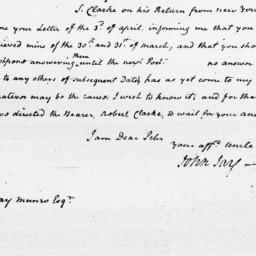 S. Clarke on his Return from new York
me your Letter of the 3d. of april, informing me that you
ieved mine of the 30th. and 31st. of march, and that you shou
stpone answering them until the next Post. no answer
to any others of subsequent Dates has as yet come to my
may be the cause; I wish to know it; and for tha
directed the Bearer, Robert Clarke, to wait for your ans
I am Dear Peter
your affte. Uncle
John Jay
ay munro Esqr.